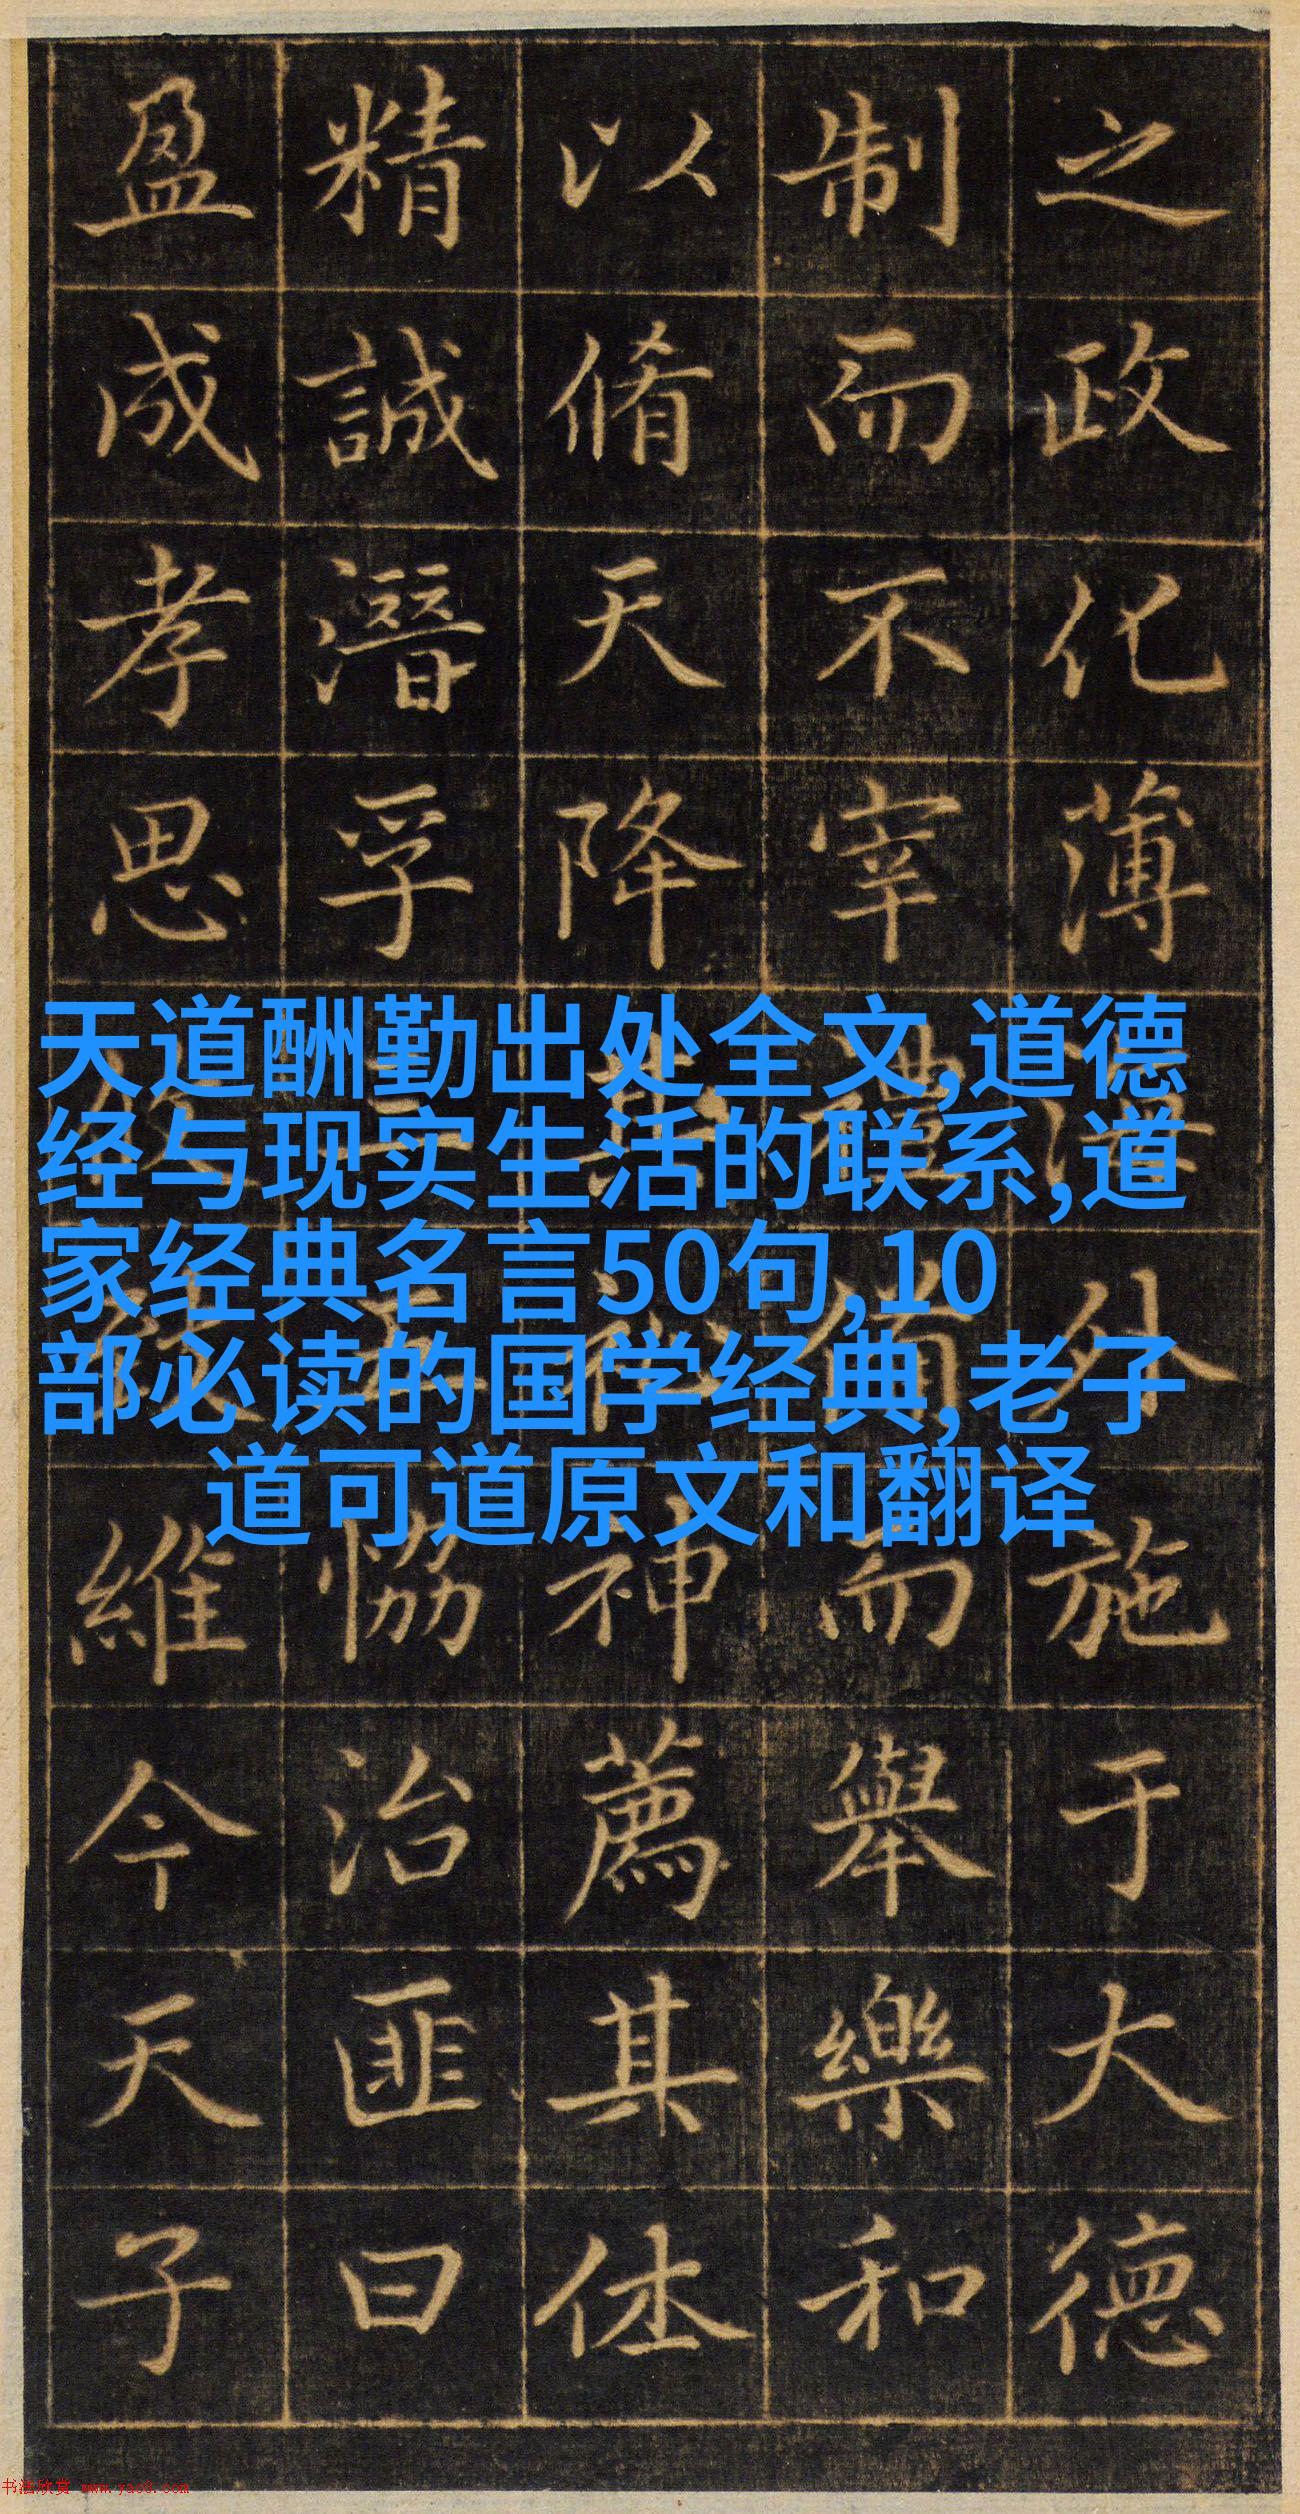 之政化薄外施于大德
制而不宰禮備而舉樂和
以脩天降其神薦其休
精誠潛孚三五恊治匪曰
盈成孝思維今天子
天道酬勤出处全文,道德
经与现实生活的联系,道
家经典名言50句,10
部必读的国学经典,老子
道可道原文和翻译
书法欣赏 www.yac8.com